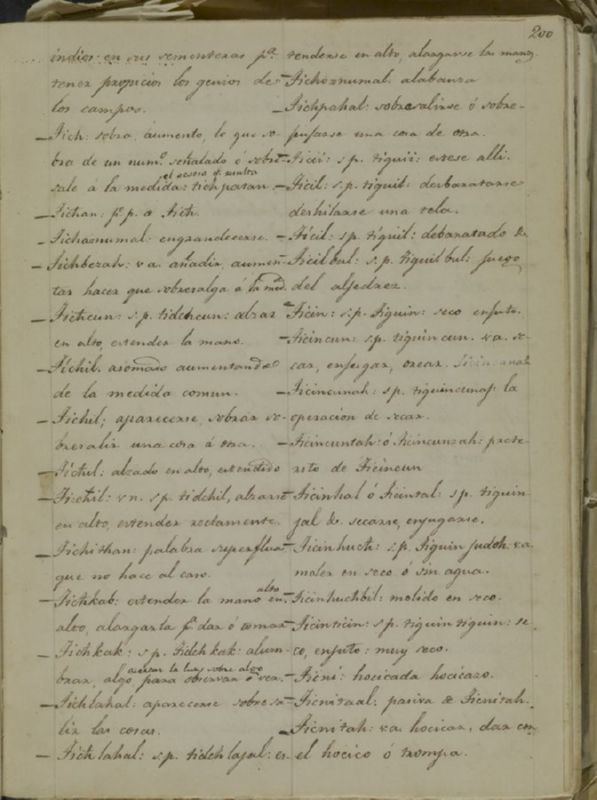 200
indios en sus sementeras pª
tener propicios los genios de
los campos.
— Tich: sobra, aumento, lo que so-
bra de un numº señalado ó sobre-
sale á la medida: tichpatan
— Tichan: pº p. a Tich.
— Tichaanumal: engrandecerse.
— Tichbezah: va. añadir, aumen-
tar hacer que sobresalga á la med.
— Tichcun: s.p. tidchcun: alzar
en alto, estender la mano.
— Tichil. asomado aumentando
de la medida comun.
— Tichil; aparecerse, sobrar so-
bresalir una cosa á otra.
— Tichil: alzado en alto, estendido
— Tichil: vn. s.p. tidchil, alzarse
en alto, estender rectamente.
— Tichithan: palabra superflua
que no hace al caso.
— Tichkab: estender la mano en
alto
alto, alargarla pª dar ó tomar
— Tichkak: s.p. Tidchkak: alum-
acercar la luz sobre algo
brar, algo para observar ó ver.
— Tichlahal: aparecerse sobresa-
lir las cosas.
— Tichlahal: s.p. tidchlajal: es
tenderse en alto, alargarse las manos
— Tichoznumal: alabanza
— Tichpahal: sobresalirse ó sobre-
pujarse una cosa de otra.
— Ticii: s.p. tiguii: estese alli.
— Ticil: s.p. tiguil: desbaratarse
deshilarse una tela.
— Ticil: s.p. tiguil: debaratado &
— Ticilbul: s.p. tiguilbul: juego
del aljedrez.
— Ticin: s.p. Tiguin: seco enjuto.
— Ticincun: s.p. tiguincun. va. se-
car, enjugar, orear.
— Ticincunah: s.p. tiguincunaj: la
operacion de secar.
— Ticincuntah: ó ticincunzah: prete-
rito de Ticincun
— Ticinhal ó ticintal: s.p. tiguin-
jal & secarse, enjugarse.
— Ticinhuch: s.p. Tiguin judch. va.
moler en seco ó sin agua.
— Ticinhuchbil: molido en seco.
— Ticinticin: s.p. tiguin tiguin: se-
co, enjuto: muy seco.
— Ticni: hocicada hocicazo.
— Ticnitaal: pasiva de Ticnitah.
— Ticnitah: va. hocicar, dar con
el hocico ó trompa.